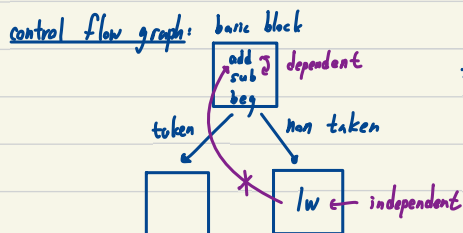 control flow graph: basic block
add
sub
beq
dependent
taken
non taken
lw
independent